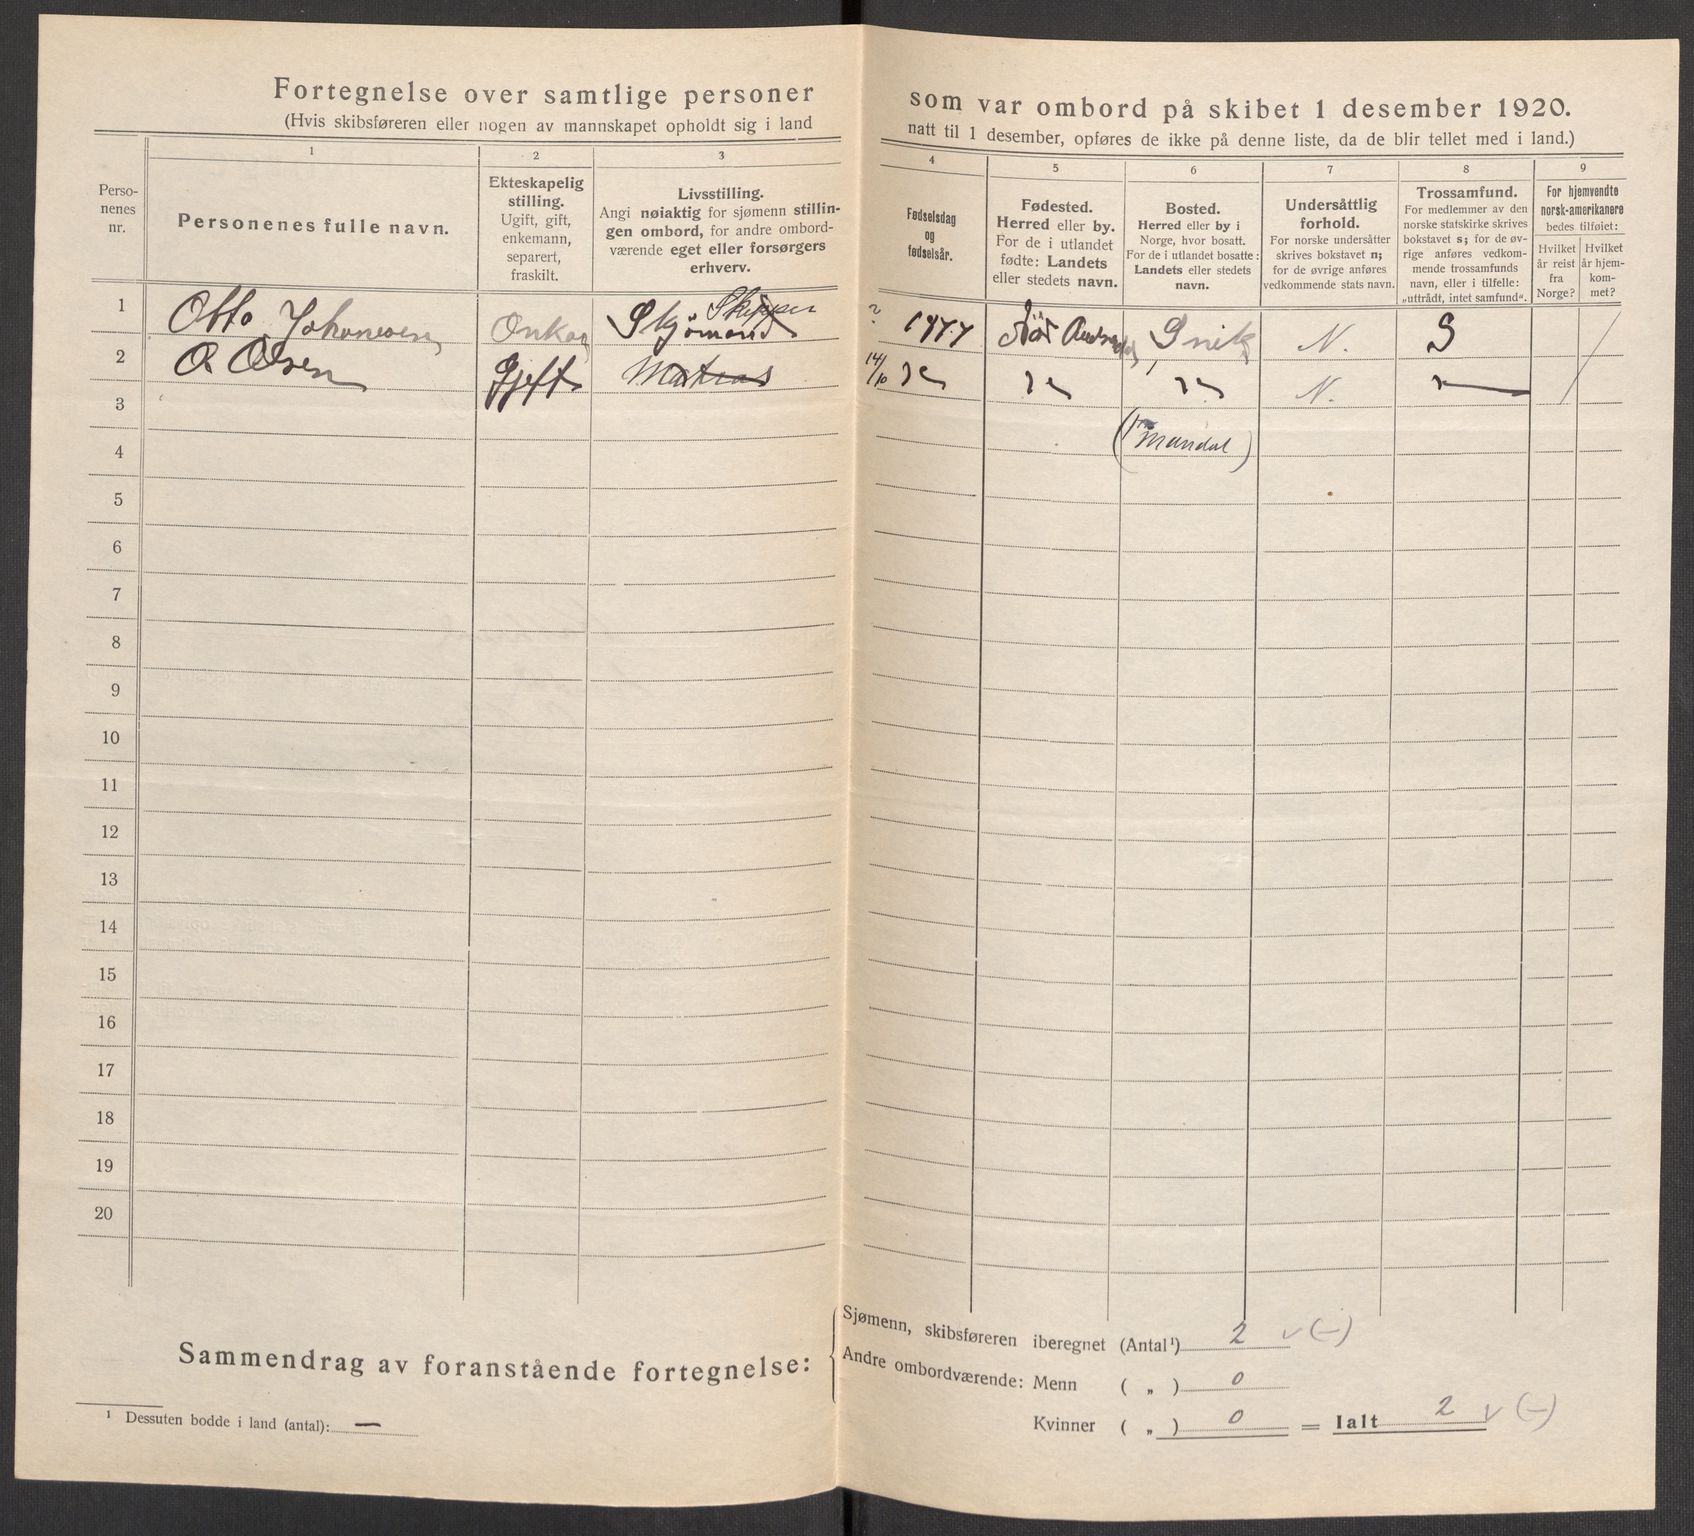 Fortegnelse over samtlige personer som var ombord på skibet 1 desember 1920.
(Hvis skibsføreren eller nogen av mannskapet opholdt sig i land natt til 1 desember, opføres de ikke på denne liste, da de blir tellet med i land.)
Perso-
nenes
nr.
1
Personenes fulle navn.
2
Ekteskapelig
stilling.
Ugift, gift,
enkemann,
separert,
fraskilt.
3
Livsstilling.
Angi nøiaktig for sjømenn stillin-
gen ombord, for andre ombord-
værende eget eller forsørgers
erhverv.
4
Fødselsdag
og
fødselsår.
5
Fødested.
Herred eller by.
For de i utlandet
fødte: Landets
eller stedets navn.
6
Bosted.
Herred eller by i
Norge, hvor bosatt.
For de i utlandet bosatte:
Landets eller stedets
navn.
7
Undersåttlig
forhold.
For norske undersåtter
skrives bokstavet n;
for de øvrige anføres
vedkommende stats navn.
8
Trossamfund.
For medlemmer av den
norske statskirke skrives
bokstavet s; for de øv-
rige anføres vedkom-
mende trossamfunds
navn, eller i tilfelle:
„uttrådt, intet samfund“.
9
For hjemvendte
norsk-amerikanere
bedes tilføiet:
Hvilket
år reist
fra
Norge?
Hvilket
år hjem-
kom-
met?
Skipper
1 Otto Johannesen Skjømand ? N. S
2 O Olsen Gjeft Matros 14/10 N.
3
(Mandal)
4
5
6
7
8
9
10
11
12
13
14
15
16
17
18
19
20
Sammendrag av foranstående fortegnelse:
Sjømenn, skibsføreren iberegnet (Antal¹) 2 v (–)
Andre ombordværende: Menn ( „ ) 0
Kvinner ( „ ) 0 = Ialt 2 v (–)
¹ Dessuten bodde i land (antal): —